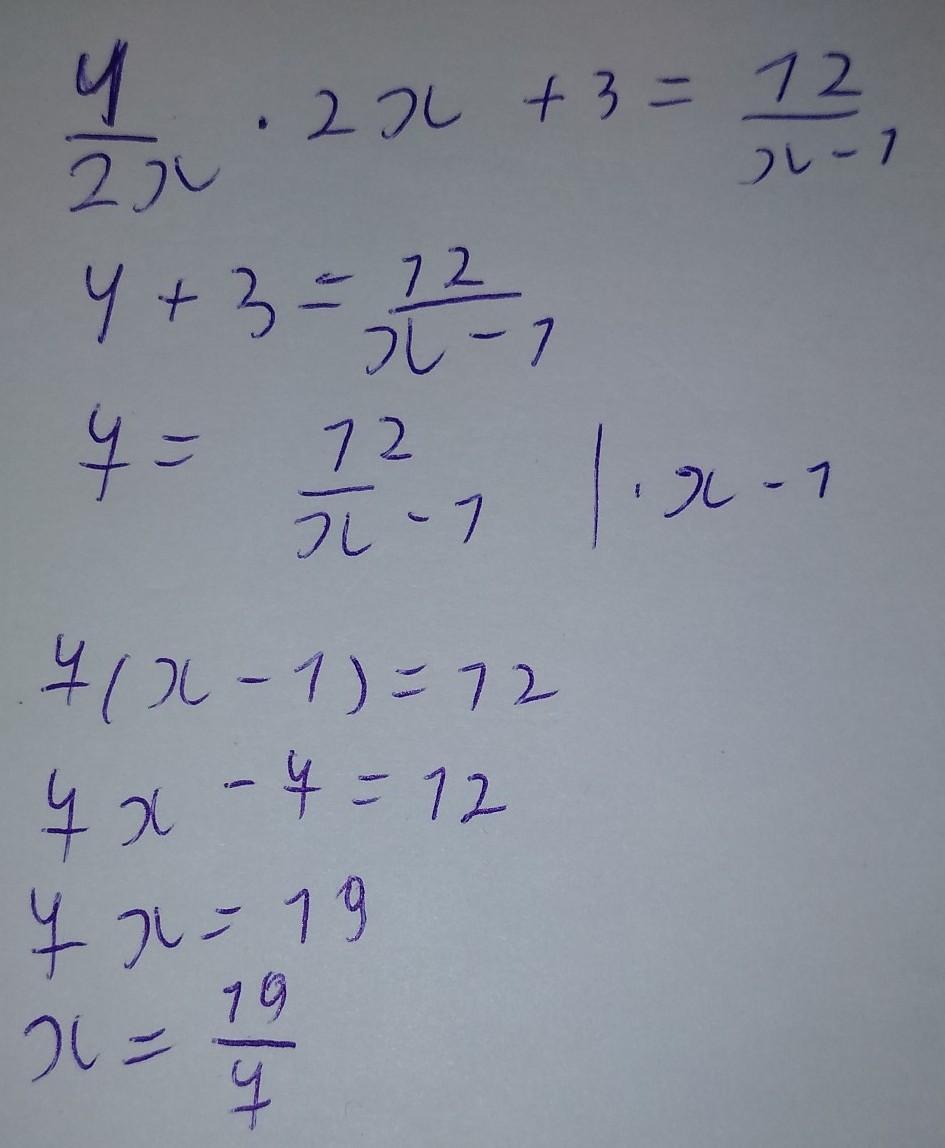 4/2x · 2x + 3 = 12/x - 1
4 + 3 = 12/x - 1
7 = 12/x - 1 | · x - 1
7(x - 1) = 12
7x - 7 = 12
7x = 19
x = 19/7